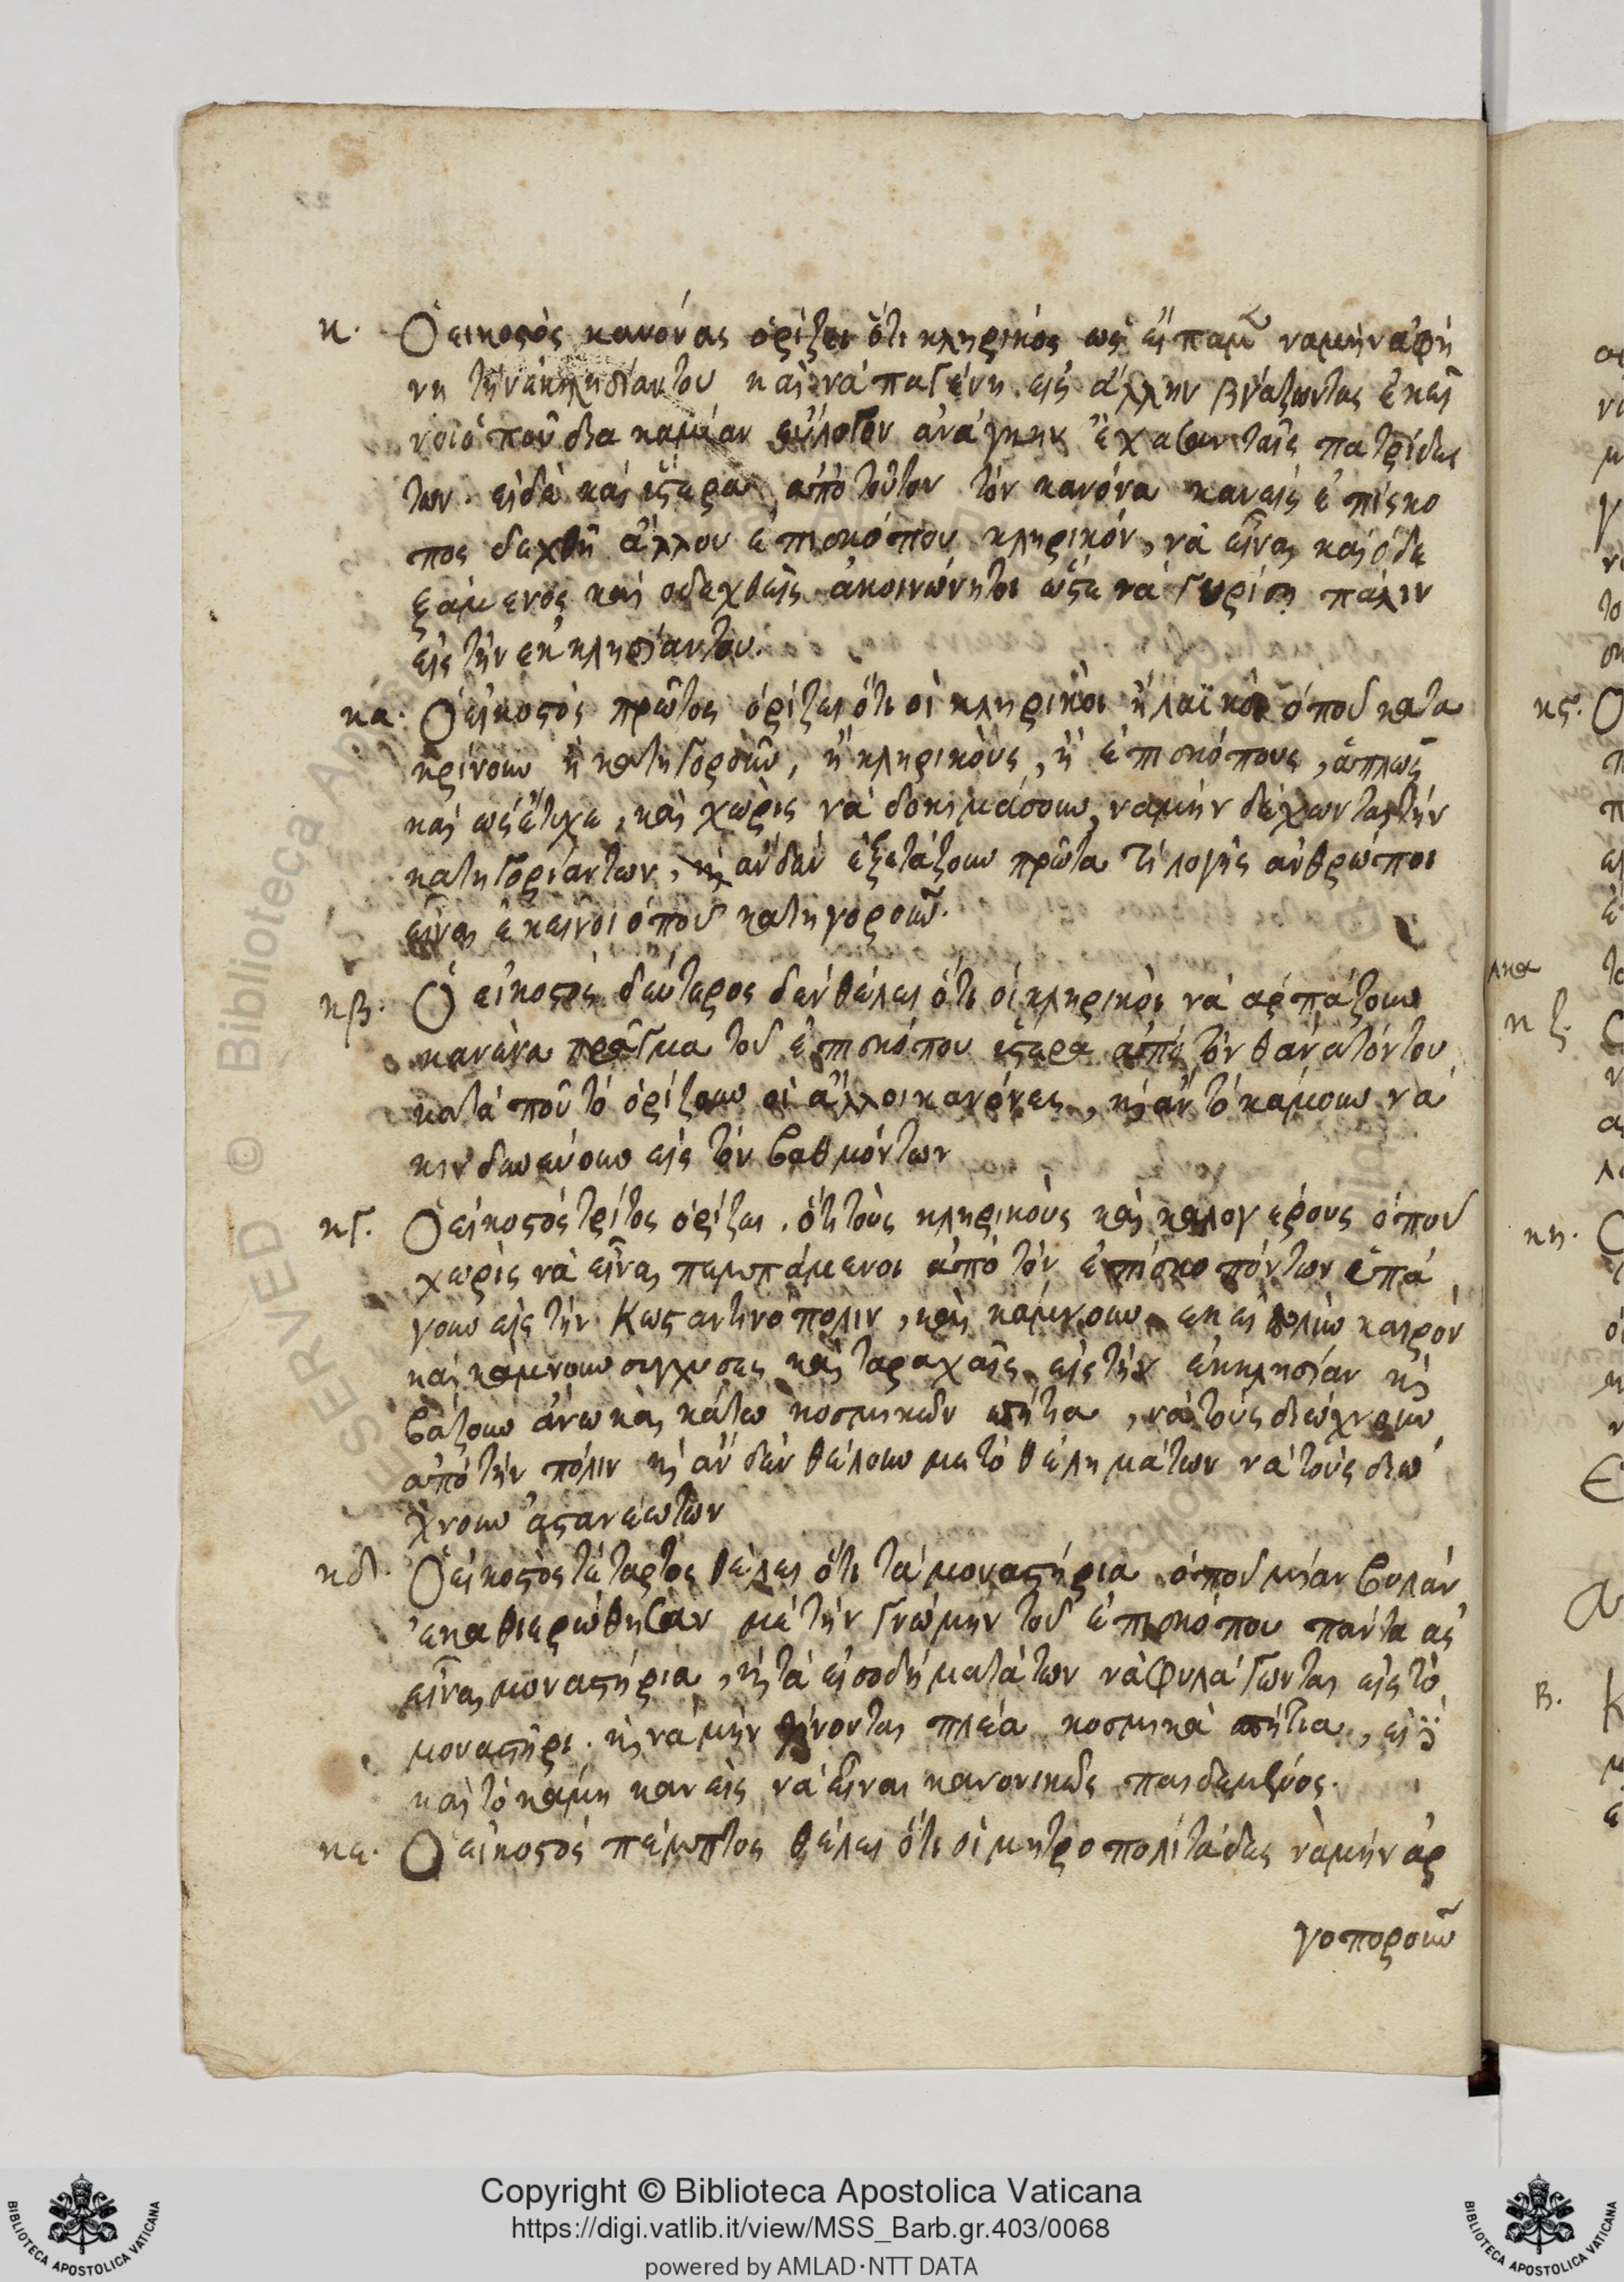 κ. Ὁ εικοστὸς κανόνας ὁρίζει ὅτι κληρικός ως εἴπαμ ναμήν αφή
νη τήν ἐκκλησίαν του καὶ νά παγένη εἰς ἄλλην βγάζωντας ἐκεῖ
νοι ὁποῦ δια καμίαν εὔλογον ἀνάγκην ἔχασαν ταῖς πατρίδες
των. εἰδὲ καὶ ὕστερα ἀπὸ τοῦτον τὸν κανόνα κανεὶς ἐπίσκο
πος δεχθῆ ἄλλου ἐπισκόπου κληρικόν, νὰ εἶναι καὶ ὁ δε
ξάμενος καὶ ο δεχθεὶς ἀκοινώνητοι ὥστε νὰ γυρίση πάλιν
εἰς τὴν εκκλησίαν του.
κα. Ὁ εἰκοστὸς πρῶτος ὁρίζει ὅτι οἱ κληρικοὶ ἤ λαϊκοὶ ὁποῦ κατα
κρίνουν ἤ κατηγοροῦν, ἤ κληρικοὺς, ἤ ἐπισκόπους, ἁπλῶς
καὶ ὡς ἔτυχε, καὶ χωρὶς νὰ δοκιμάσουν, ναμήν δέχωνται τήν
κατηγορίαν των, ἂν δὲν ἐξετάζουν πρῶτα τί λογῆς ἀνθρώποι
εἶναι ἐκεῖνοι ὁποῦ κατηγοροῦν.
κβ. Ὁ εἰκοστὸς δεύτερος δεν θέλει ὅτι οἱ κληρικοὶ νὰ αρπάζουν
κανένα πρᾶγμα τοῦ ἐπισκόπου ὕστερα ἀπὸ τὸν θάνατόν του
κατὰ ποῦ τὸ ὁρίζουν οἱ ἄλλοι κανόνες, κὶ ἂν τὸ κάμουν νὰ
κινδυνεύουν εἰς τὸν βαθμόν των
κγ. Ὁ εἰκοστὸς τρίτος ὁρίζει, ὅτι τοὺς κληρικοὺς καὶ καλογέρους ὁποῦ
χωρὶς νὰ εἶναι πεμπάμενοι ἀπὸ τὸν ἐπίσκοπόν των ὑπά
γουν εἰς τὴν Κωσταντινόπολιν, καὶ κάμνουν ἐκεῖ πολὺν καιρὸν
καὶ κάμνουν σιγχυσες καὶ ταραχαῖς εἰς τὴν ἐκκλησίαν κὶ
βάζουν ἄνω καὶ κάτω κοσμικῶν σπήτια, νὰ τοὺς διώχνουν
ἀπὸ τὴν πόλιν κὶ ἂν δὲν θέλουν με τὸ θέλημάτων νὰ τοὺς διώ
χνουν ἀστανέωτων
κδ. Ὁ εἰκοστὸς τέταρτος θέλει ὅτι τὰ μοναστήρια ὁποῦ μίαν βολὰν
ἐκαθιερώθησαν μὲ τὴν γνώμην τοῦ ἐπισκόπου πάντα ας
εἶναι μοναστήρια, κὶ τὰ εἰσοδήματά των νὰ φυλάγωνται εἰς τὸ
μοναστῆρι. κὶ νὰ μὴν γίνονται πλέα κοσμικὰ σπήτια, εἰ δ
καὶ τὸ κάμη κανεὶς νὰ εἶναι κανονικῶς παιδεμένος.
κε. Ὁ εἰκοστὸς πέμπτος θέλει ὅτι οἱ μητροπολίτάδες νὰ μὴν αρ
γοποροῦν
κς.
κζ.
κη.
β.
Copyright © Biblioteca Apostolica Vaticana
https://digi.vatlib.it/view/MSS_Barb.gr.403/0068
powered by AMLAD·NTT DATA
BIBLIOTECA APOSTOLICA VATICANA
BIBLIOTECA APOSTOLICA VATICANA